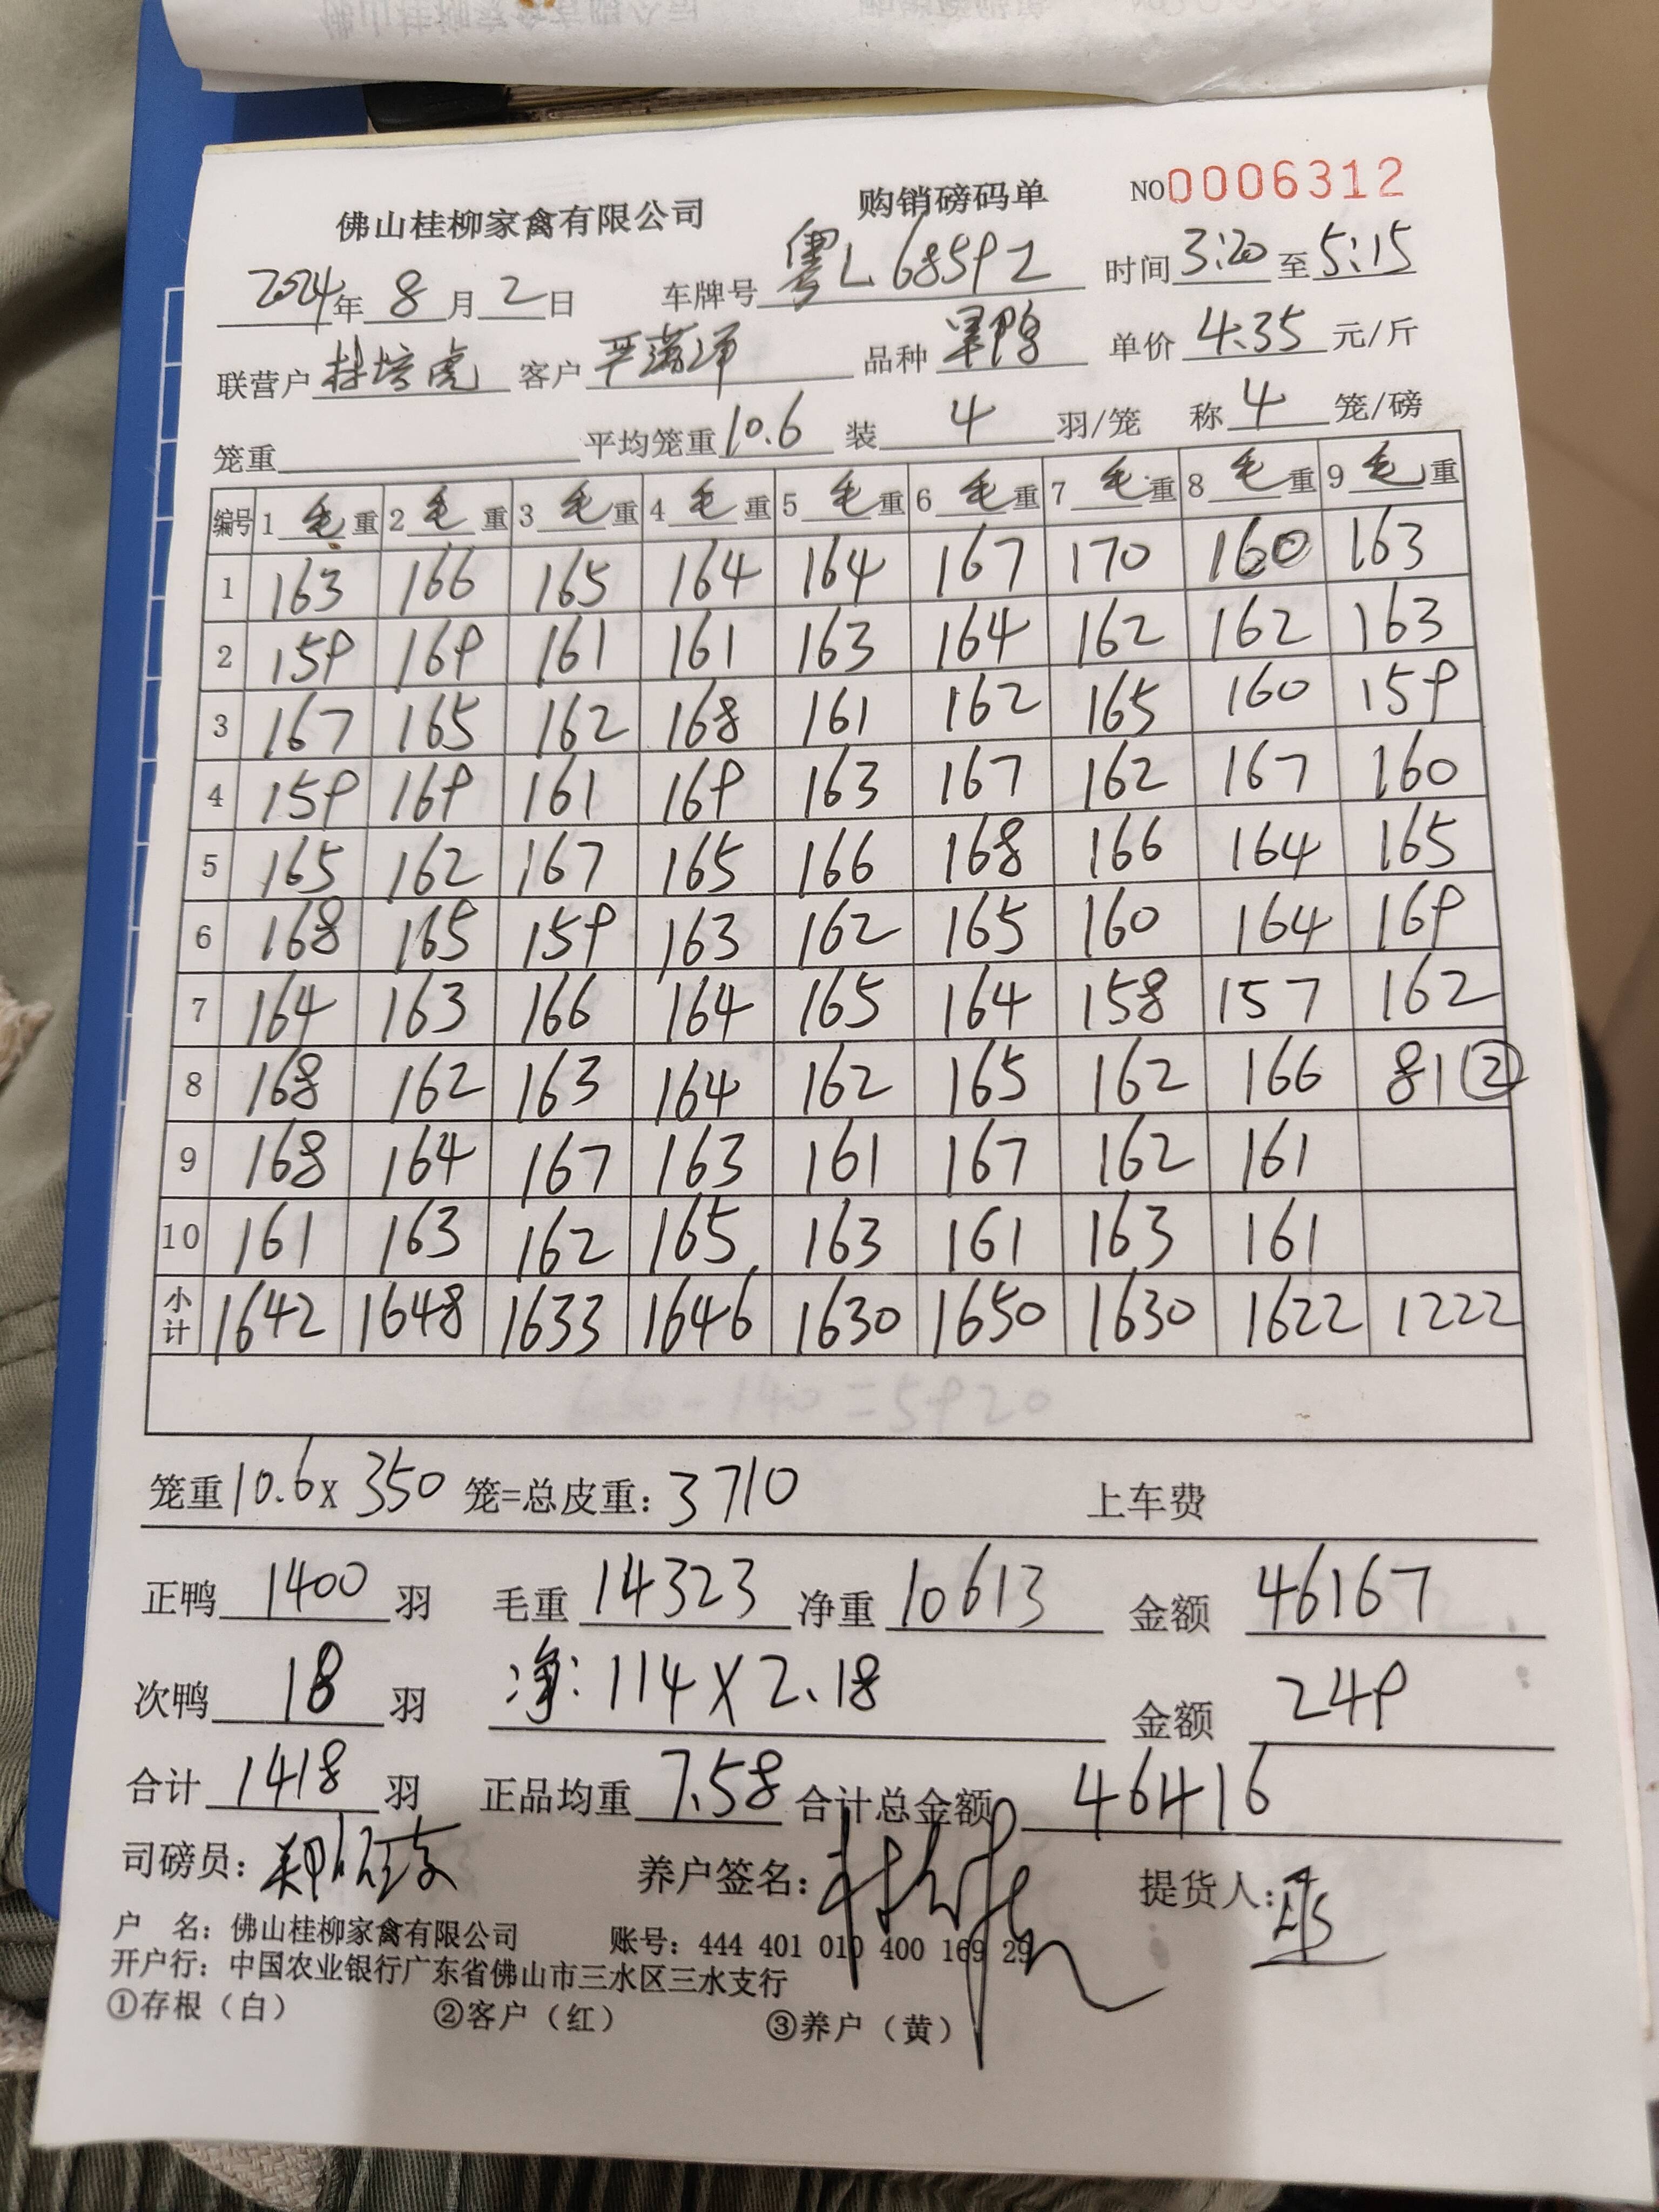 佛山桂柳家禽有限公司 购销磅码单 NO0006312
2024年 8 月 2 日 车牌号 粤L68592 时间 3:20 至 5:15
联营户 林培虎 客户 品种 单价 4.35 元/斤
笼重 平均笼重 10.6 装 4 羽/笼 称 4 笼/磅
编号 1 毛 重 2 毛 重 3 毛 重 4 毛 重 5 毛 重 6 毛 重 7 毛 重 8 毛 重 9 毛 重
1 163 166 165 164 164 167 170 160 163
2 159 169 161 161 163 164 162 162 163
3 167 165 162 168 161 162 165 160 159
4 159 169 161 169 163 167 162 167 160
5 165 162 167 165 166 168 166 164 165
6 168 165 159 163 162 165 160 164 169
7 164 163 166 164 165 164 158 157 162
8 168 162 163 164 162 165 162 166 81②
9 168 164 167 163 161 167 162 161
10 161 163 162 165 163 161 163 161
小计 1642 1648 1633 1646 1630 1650 1630 1622 1222
笼重 10.6 x 350 笼=总皮重: 3710 上车费
正鸭 1400 羽 毛重 14323 净重 10613 金额 46167
次鸭 18 羽 净: 114 X 2.18 金额 249
合计 1418 羽 正品均重 7.58 合计总金额 46416
司磅员: 养户签名: 提货人:
户 名: 佛山桂柳家禽有限公司 账号: 444 401 010 400 169 29
开户行: 中国农业银行广东省佛山市三水区三水支行
①存根（白） ②客户（红） ③养户（黄）